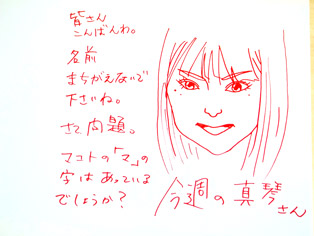 皆さん
こんばんわ。
名前
まちがえないで
下さいね。
さて問題。
マコトの「マ」の
字はあっている
でしょうか？
今週の真琴
さん